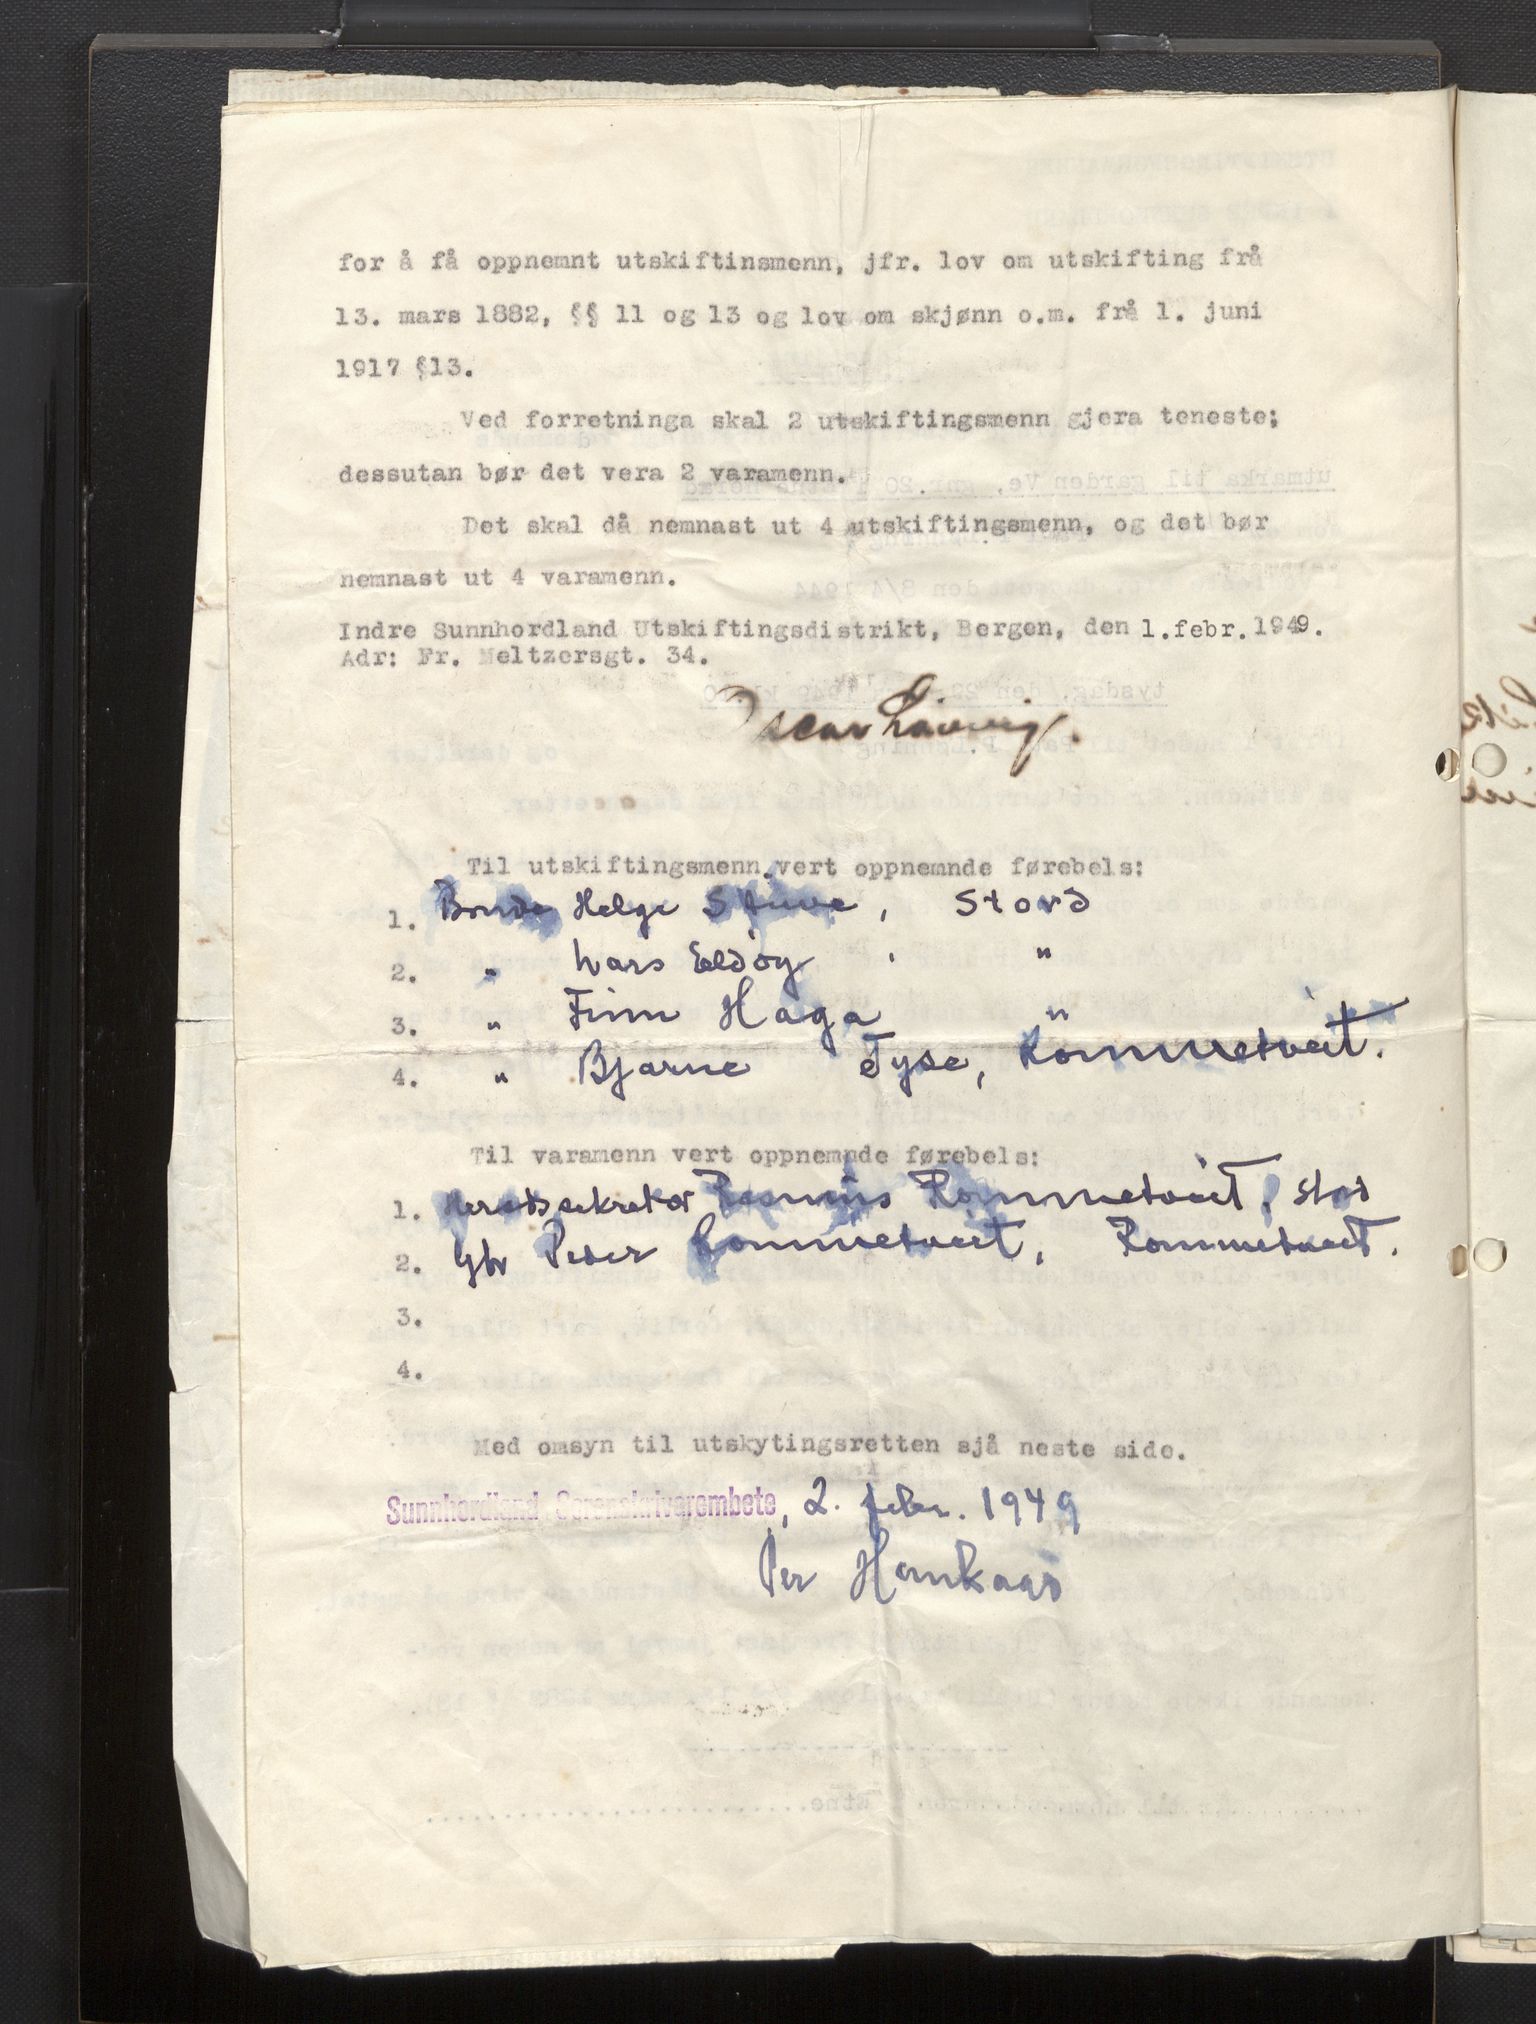 for å få oppnemnt utskiftinsmenn, jfr. lov om utskifting frå
13. mars 1882, §§ 11 og 13 og lov om skjønn o.m. frå 1. juni
1917 §13.
Ved forretninga skal 2 utskiftingsmenn gjera teneste;
dessutan bør det vera 2 varamenn.
Det skal då nemnast ut 4 utskiftingsmenn, og det bør
nemnast ut 4 varamenn.
Indre Sunnhordland Utskiftingsdistrikt, Bergen, den 1.febr.1949.
Adr: Fr. Meltzersgt. 34.
Oscar
Til utskiftingsmenn vert oppnemnde førebels:
1. Bonde Helge Stuve, Stord
2. " Lars Eldøy, "
3. " Finn Haga "
4. " Bjarne Tyse, Rommetveit.
Til varamenn vert oppnemnde førebels:
1. Heradssekretær Rasmus Rommetveit, Stord
2. Gbr Peder Rommetveit, Rommetveit.
3.
4.
Med omsyn til utskytingsretten sjå neste side.
Sunnhordland Sorenskrivarembete, 2. febr. 1949
Per